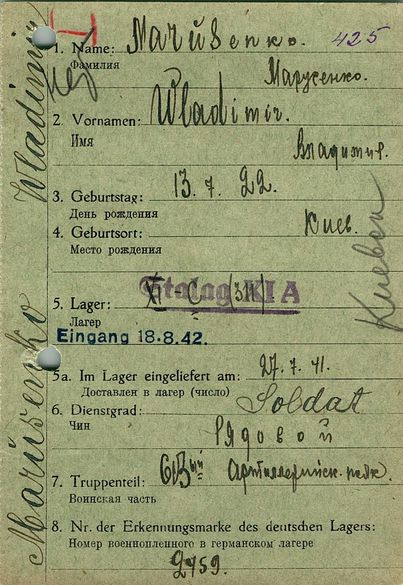 1. Name: Marusenko. 425
Фамилия Марусенко.
2. Vornamen: Wladimir.
Имя Владимир.
3. Geburtstag: 13. 7. 22.
День рождения
4. Geburtsort: Киев.
Место рождения
Stalag XI A
5. Lager: XI C (311)
Лагерь
Eingang 18.8.42.
5a. Im Lager eingeliefert am: 27. 7. 41.
Доставлен в лагерь (число)
6. Dienstgrad: Soldat
Чин Рядовой
7. Truppenteil: артиллерийск. полк.
Воинская часть
8. Nr. der Erkennungsmarke des deutschen Lagers:
Номер военнопленного в германском лагере
2759.
Marusenko Wladimir